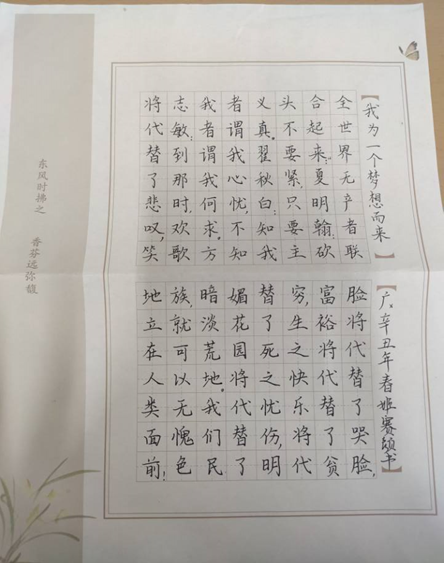 【我为一个梦想而来】
全世界无产者联
合起来。夏明翰:砍
头不要紧,只要主
义真。瞿秋白:知我
者谓我心忧,不知
我者谓我何求。方
志敏:到那时,欢歌
将代替了悲叹,笑
脸将代替了哭脸,
富裕将代替了贫
穷,生之快乐将代
替了死之忧伤,明
媚花园将代替了
暗淡荒地。我们民
族,就可以无愧色
地立在人类面前!
【辛丑年春姬赛书】
东风时拂之
香芬远弥馥